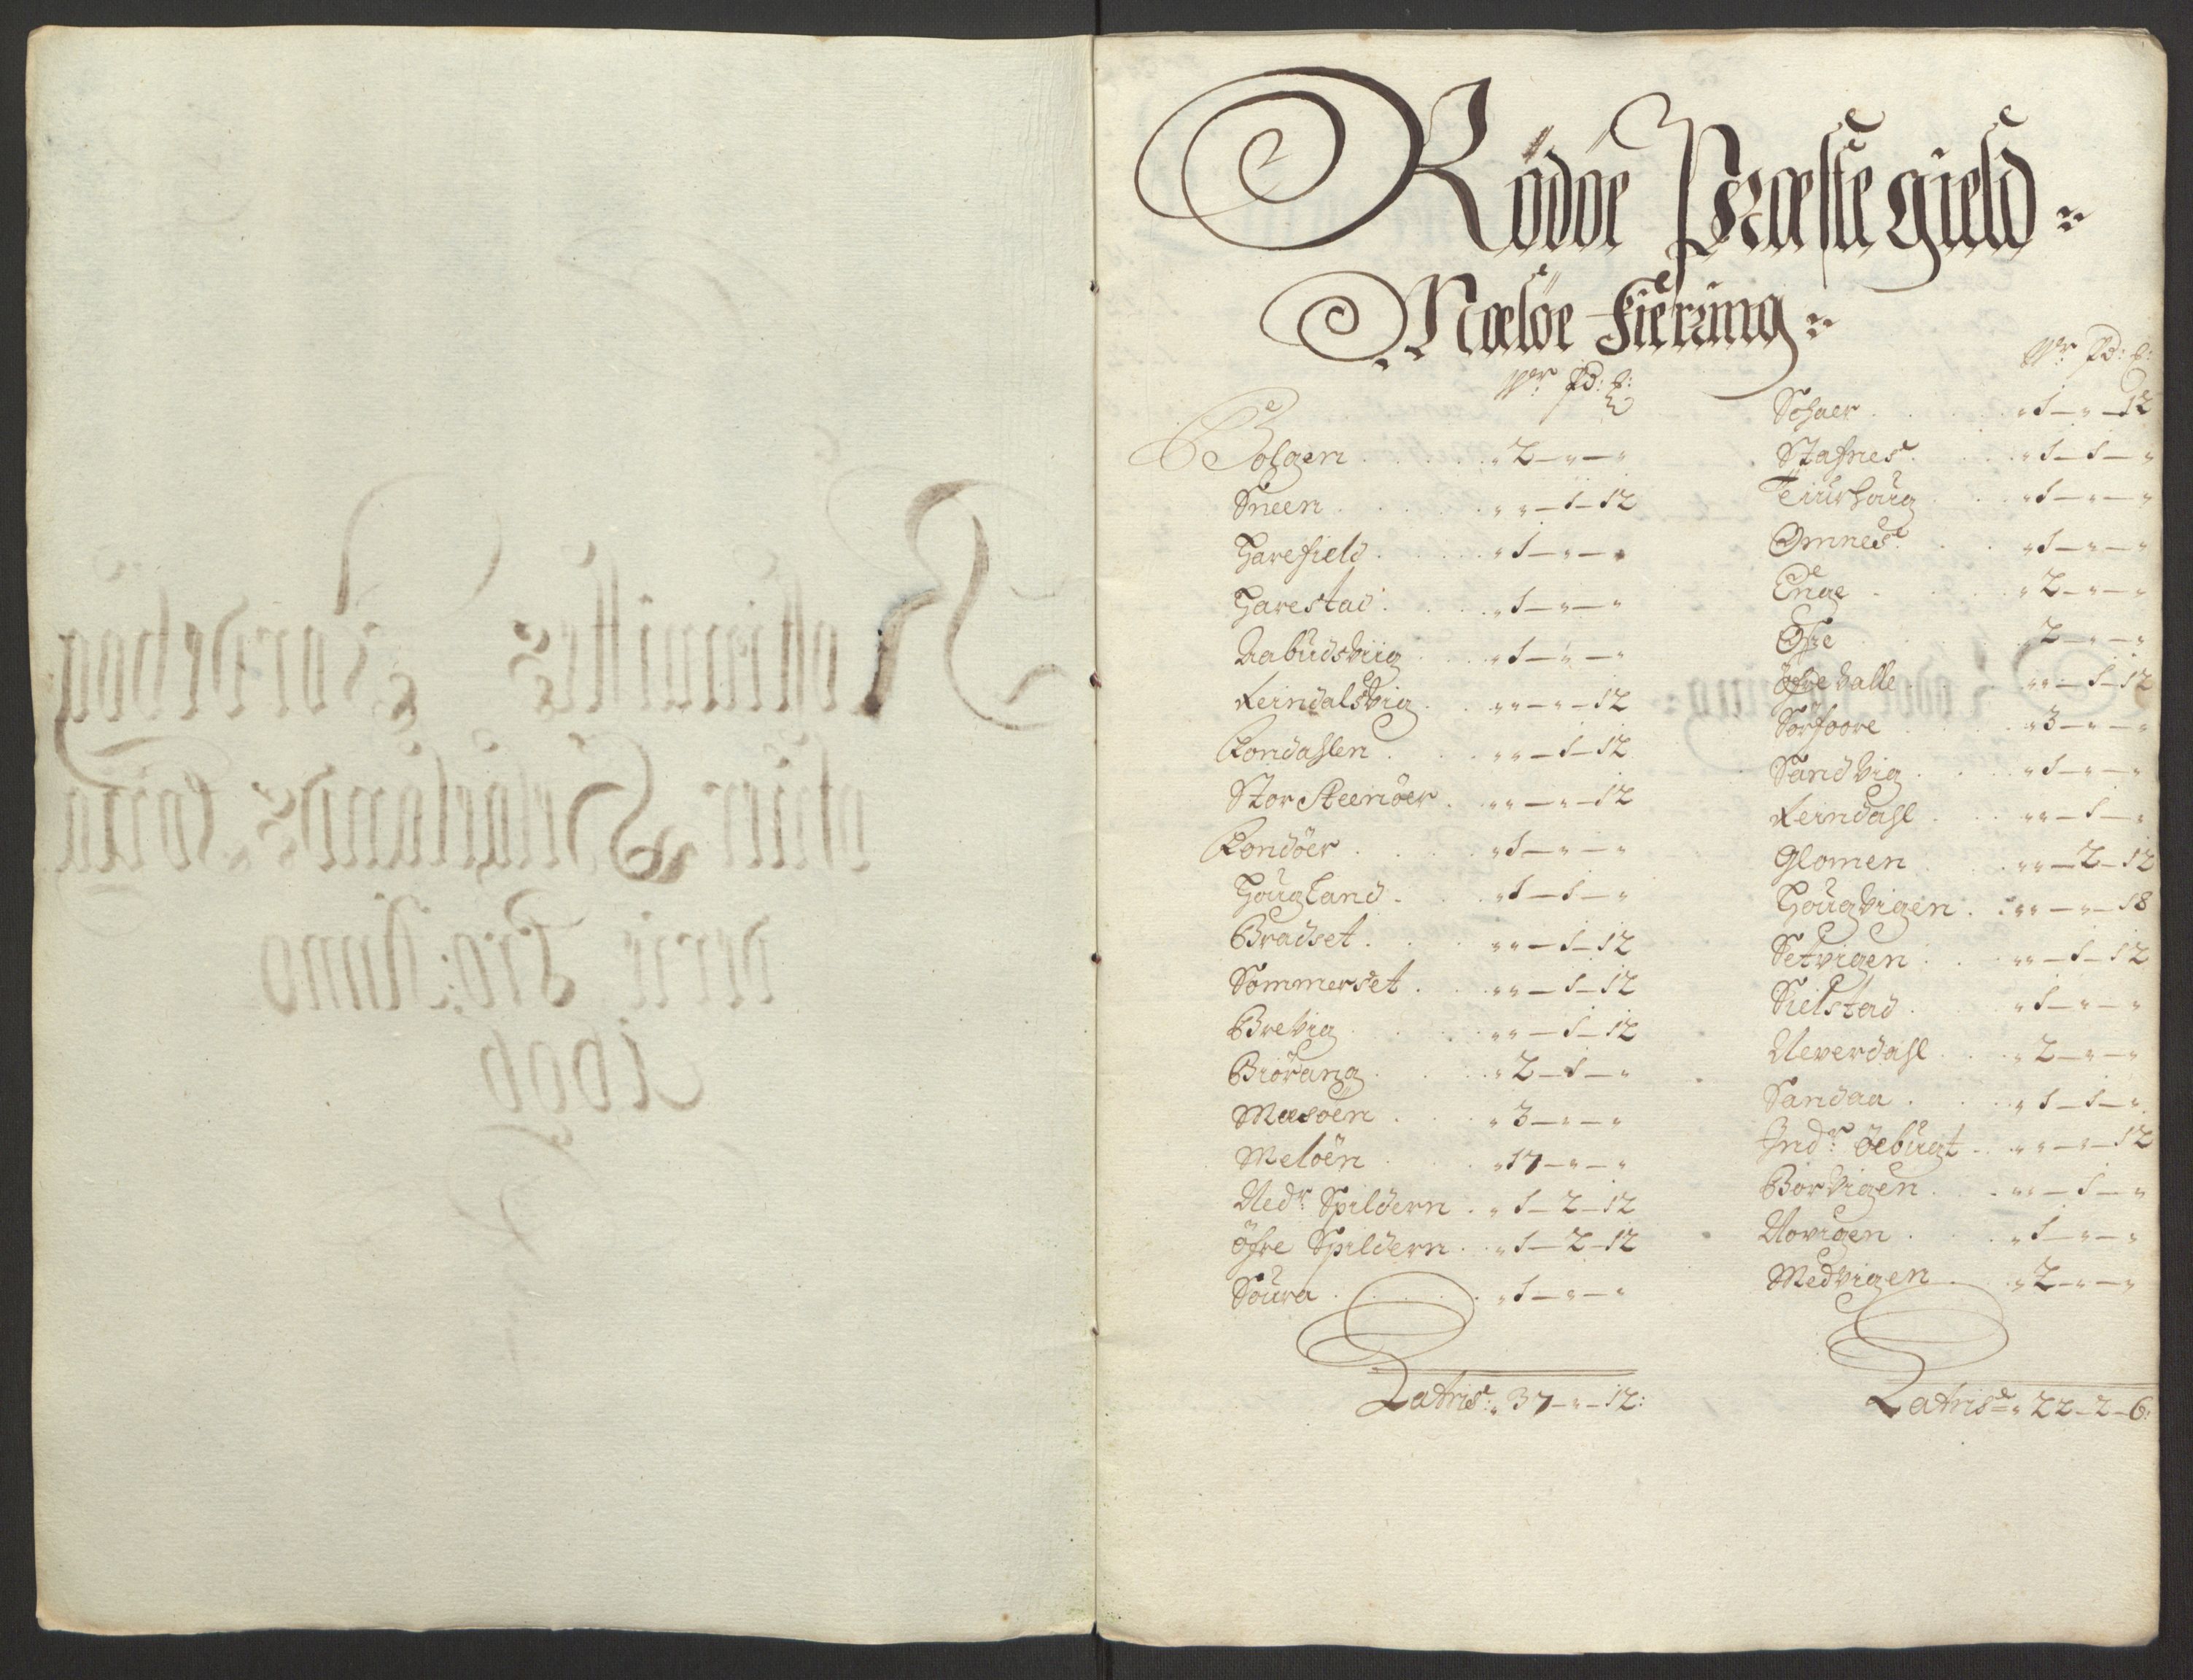 Rödöe Præstegield
Meløe Fiering
Wr Pd: ℔:
Bolgen . . . . „ 2 — „ — „
Sneen . . . . „ „ — 1 — 12
Harefield . . . „ 1 — „ — „
Harestad . . . „ 1 — „ — „
Aabudsviig . . . „ 1 — „ — „
Reindalsvig . . „ „ — „ — 12
Rondahlen . . . „ „ — 1 — 12
Stor Steenöer . „ „ — „ — 12
Rondöer . . . . „ 1 — „ — „
Hougland . . . „ 1 — 1 — „
Bradset . . . . „ „ — 1 — 12
Sommerset . . „ „ — 1 — 12
Brevig . . . . „ „ — 1 — 12
Biörang . . . . „ 2 — 1 — „
Mæsöen . . . . „ 3 — „ — „
Meloën . . . . „ 17 — „ — „
Nedr Spildern . „ 1 — 2 — 12
öfre Spildern . „ 1 — 2 — 12
Soura . . . . „ 1 — „ — „
Latris: „ 37 — „ — 12:
Wr Pd: ℔:
Schaer . . . . „ 1 — „ — 12
Stafnes . . . . „ 1 — 1 — „
Teiurhaug . . . „ 1 — „ — „
Omnes . . . . „ 1 — „ — „
Enge . . . . „ 2 — „ — „
Øsie . . . . 2 — „ — „
öfre Valle . . . „ „ — 1 — 12
Sörfoore . . . „ 3 — „ — „
Sandvig . . . . „ 1 — „ — „
Reindahl . . . „ „ — 1 — „
Glomen . . . . „ „ — 2 — 12
Hougvigen . . „ „ — „ — 18
Setvigen . . . „ „ — 1 — 12
Sielstad . . . . „ 1 — „ — „
Neverdahl . . . „ 2 — „ — „
Sandaa . . . . „ 1 — 1 — „
Indr öebugt . . „ „ — „ — 12
Börvigen . . . „ „ — 1 — „
Novigen . . . . „ 1 — „ — „
Medvigen . . . „ 2 — „ — „
Latris „ 22 — 2 — 6: